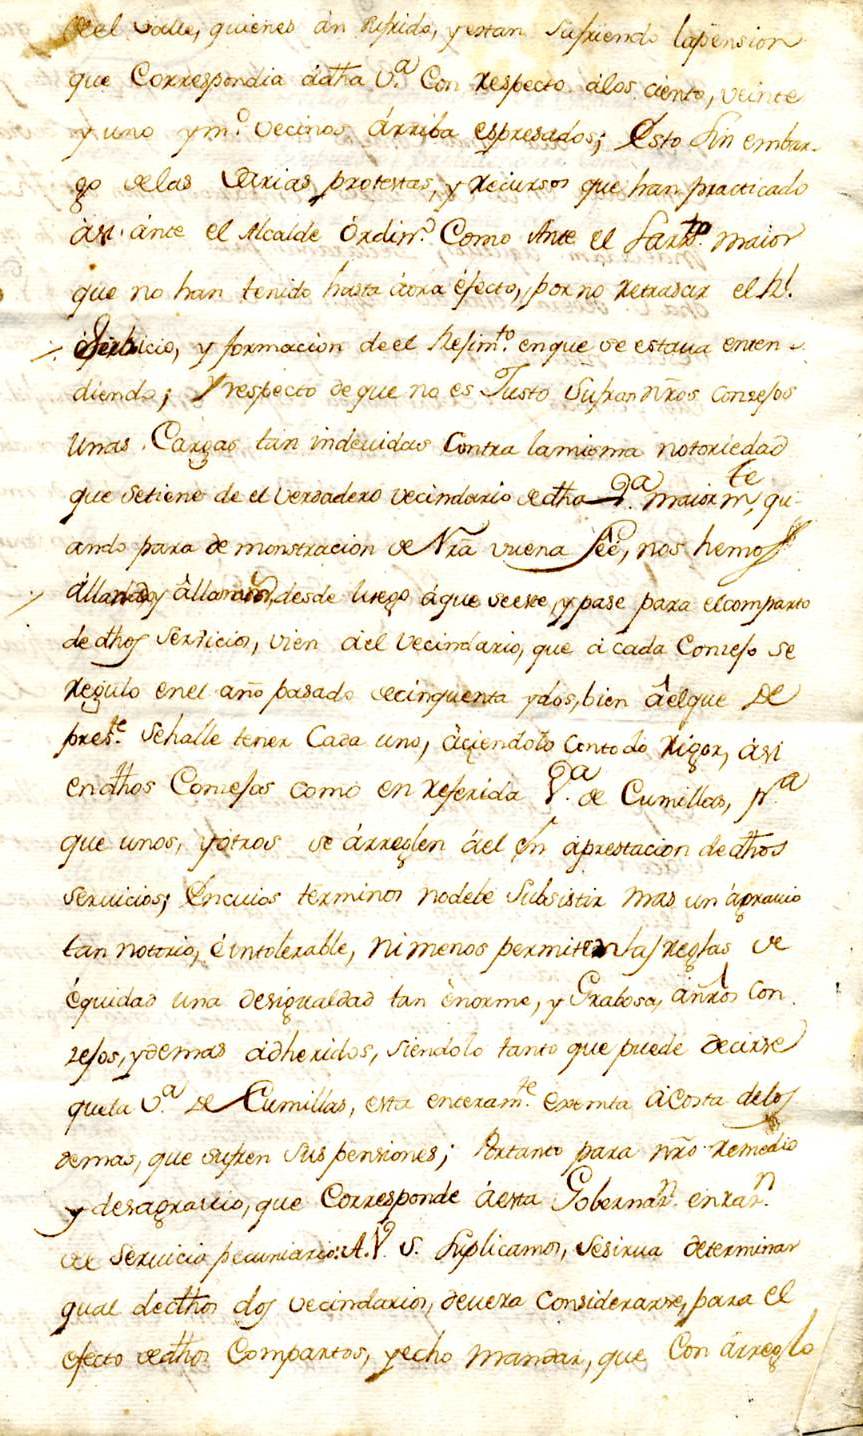 de el Valle, quienes án sufrido, y estan sufriendo la pension
que Correspondia ádha V.ª Con respecto álos ciento, veinte
y uno y m.º vecinos árriba espresados; Esto Sin embar-
go de las Varias protestas, y recursos que han practicado
ási ánte el Alcalde órdin.º Como Ante el Sarx.to maior
que no han tenido hasta áora éfecto, por nó retrasar el Rl.
Servicio, y formacion de el Resim.to en que se estaua enten-
diendo; Y respecto de que no es Justo Sufran nrõs conzejos
unas Cargas tan indeuidas Contra la misma notoriedad
que setiene de el verdadero vecindario de dha V.ª maiorm.te, qu-
ando para demonstracion de Nrã vuena Feé, nos hemos
állanado y állanamos, desde luego á que se este, y pase para el comparto
de dhos servicios, vien ael vecindario, que á cada Conzejo se
regulo en el año pasado de cinquenta y dos, bien áel que De
pres.te se halle tener Cada uno, áciendolo con todo rigor, ási
en dhos Conzejos como en referida V.ª de Cumillas, p.ª
que unos, y otros se árreglen áel en á prestacion de dhos
seruicios; En cuios terminos no debe Subsistir mas un ágrauio
tan notorio, é intolerable, ni menos permiten las reglas de
équidad una desigualdad tan énorme, y Grabosa, á nrõs Con
zejos, y demas ádheridos, siendolo tanto que puede decirse
que la V.ª De Cumillas, esta enteram.te exemta á costa de los
demas, que sufren sus pensiones; Portanto para nrõ remedio
y desagrauio, que Corresponde á esta Gobernan.n en raz.n
de Seruicio pecuniario: A. V. S. Suplicamos, se sirua determinar
qual de dhos dos vecindarios, deuera considerarse, para el
efecto de dhos Compartos, y echo mandar, que Con árreglo